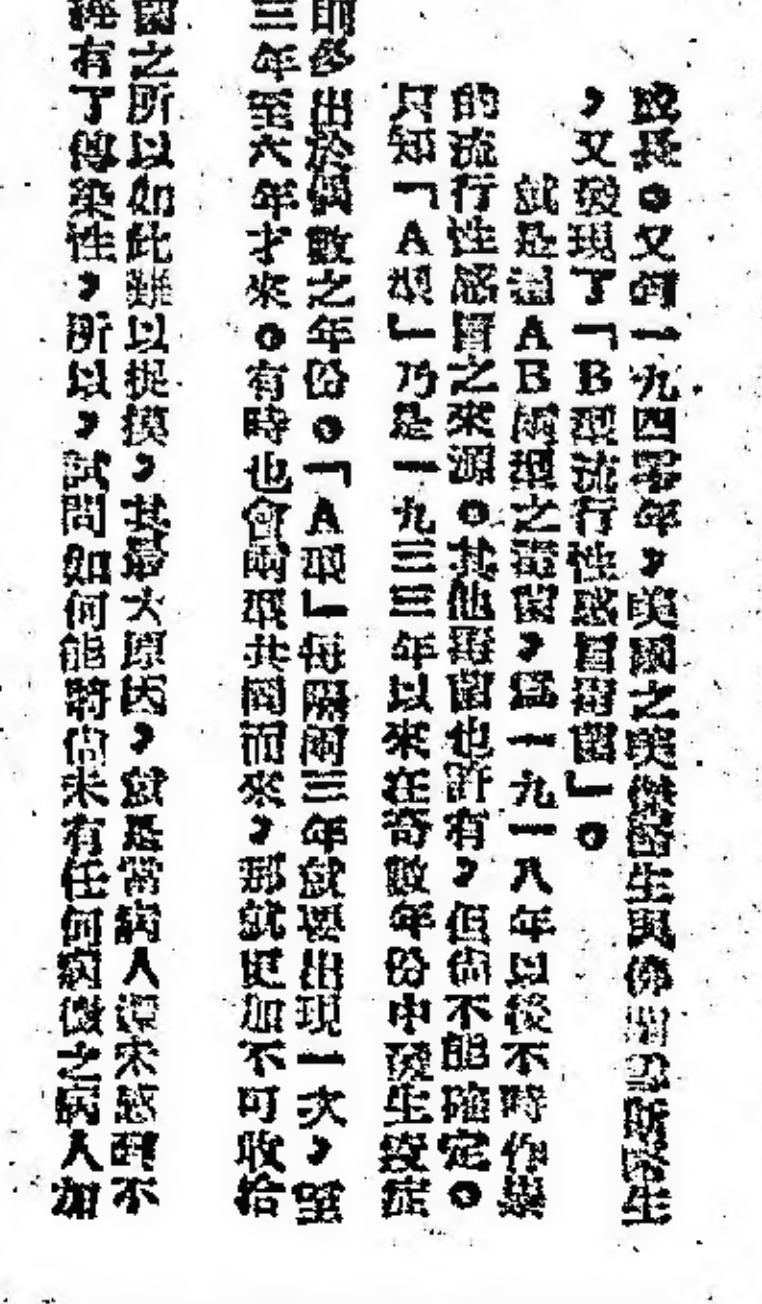 成長。又到一九四零年,美國之美傑醫生與佛斯醫生
,又發現了「B型流行性感冒毒菌」。
就是這AB兩型之毒菌,爲一九一八年以後不時作祟
的流行性感冒之來源。其他毒菌也許有,但尚不能確定。
只知「A型」乃是一九三三年以來在奇數年份中發生疫症
即多出於偶數之年份。「A型」每隔兩三年就要出現一次,
三年至六年才來。有時也會兩型共同而來,那就更加不可收拾
菌之所以如此難以捉摸,其最大原因,就是當病人還未感到不
經有了傳染性,所以,試問如何能將尚未有任何病徵之病人加